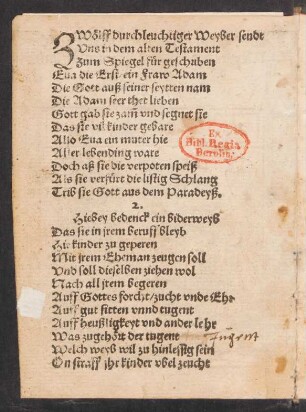 ZWölff durchleuchtiger Weyber sendt
Vns in dem alten Testament
Zum Spiegel für geschriben
Eua die Erst ein Fraw Adam
Die Gott auß seiner seytten nam
Die Adam seer thet lieben
Gott gab sie zam vnd segnet sie
Das sie vil kinder gebare
Also Eua ein muter hie
Aller lebending ware
Doch aß sie die verpoten speiß
Als sie verfürt die listig Schlang
Trib sie Gott aus dem Paradeyß.
Ex
Bibl. Regia
Berolin.
2.
Hiebey bedenck ein biderweyb
Das sie in jrem beruff bleyb
Hie kinder zu geperen
Mit jrem Eheman zeugen soll
Vnd soll dieselben ziehen wol
Nach all jrem begeren
Auff Gottes forcht/zucht vnde Ehr
Auff gut sitten vnnd tugent
Auff heußligkeyt vnd ander lehr
Was zugehört der tugent Jugent
Welch weyb wil zu hinlessig sein
On straff jhr kinder vbel zeucht